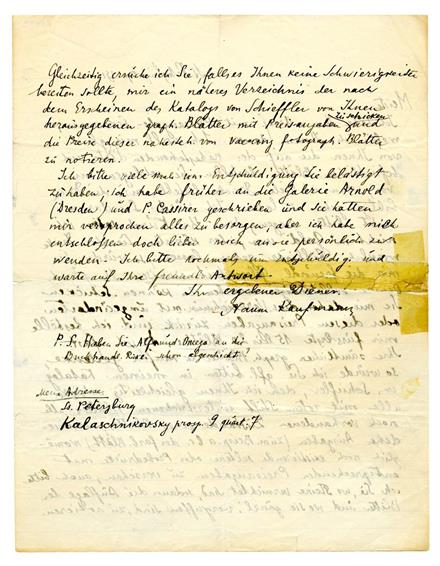 Gleichzeitig ersuche ich Sie, falls es Ihnen keine Schwierigkeiten
bereiten sollte, mir ein näheres Verzeichnis der nach
dem Erscheinen des Katalogs von Schieffler von Ihnen
herausgegebenen graph. Blätter mit Preisangaben zuschicken und
die Preise dieser Blätter
zu notieren.
Ich bitte viele mals um Entschuldigung Sie belästigt
zu haben; ich habe früher an die Galerie Arnold
(Dresden) und P. Cassirer geschrieben und Sie hatten
mir versprochen alles zu besorgen, aber ich habe mich
entschlossen doch lieber mich an Sie persönlich zu
wenden. Ich bitte nochmals um entschuldig. und
warte auf Ihre freundl. Antwort.
Ihr ergebener Diener
Naum Kaufmann
P.S. Haben Sie Alfa und Omega an die
schon abgeschickt?
Meine Adresse:
St. Petersburg
Kalaschnikovsky prosp. 9 quart. 7